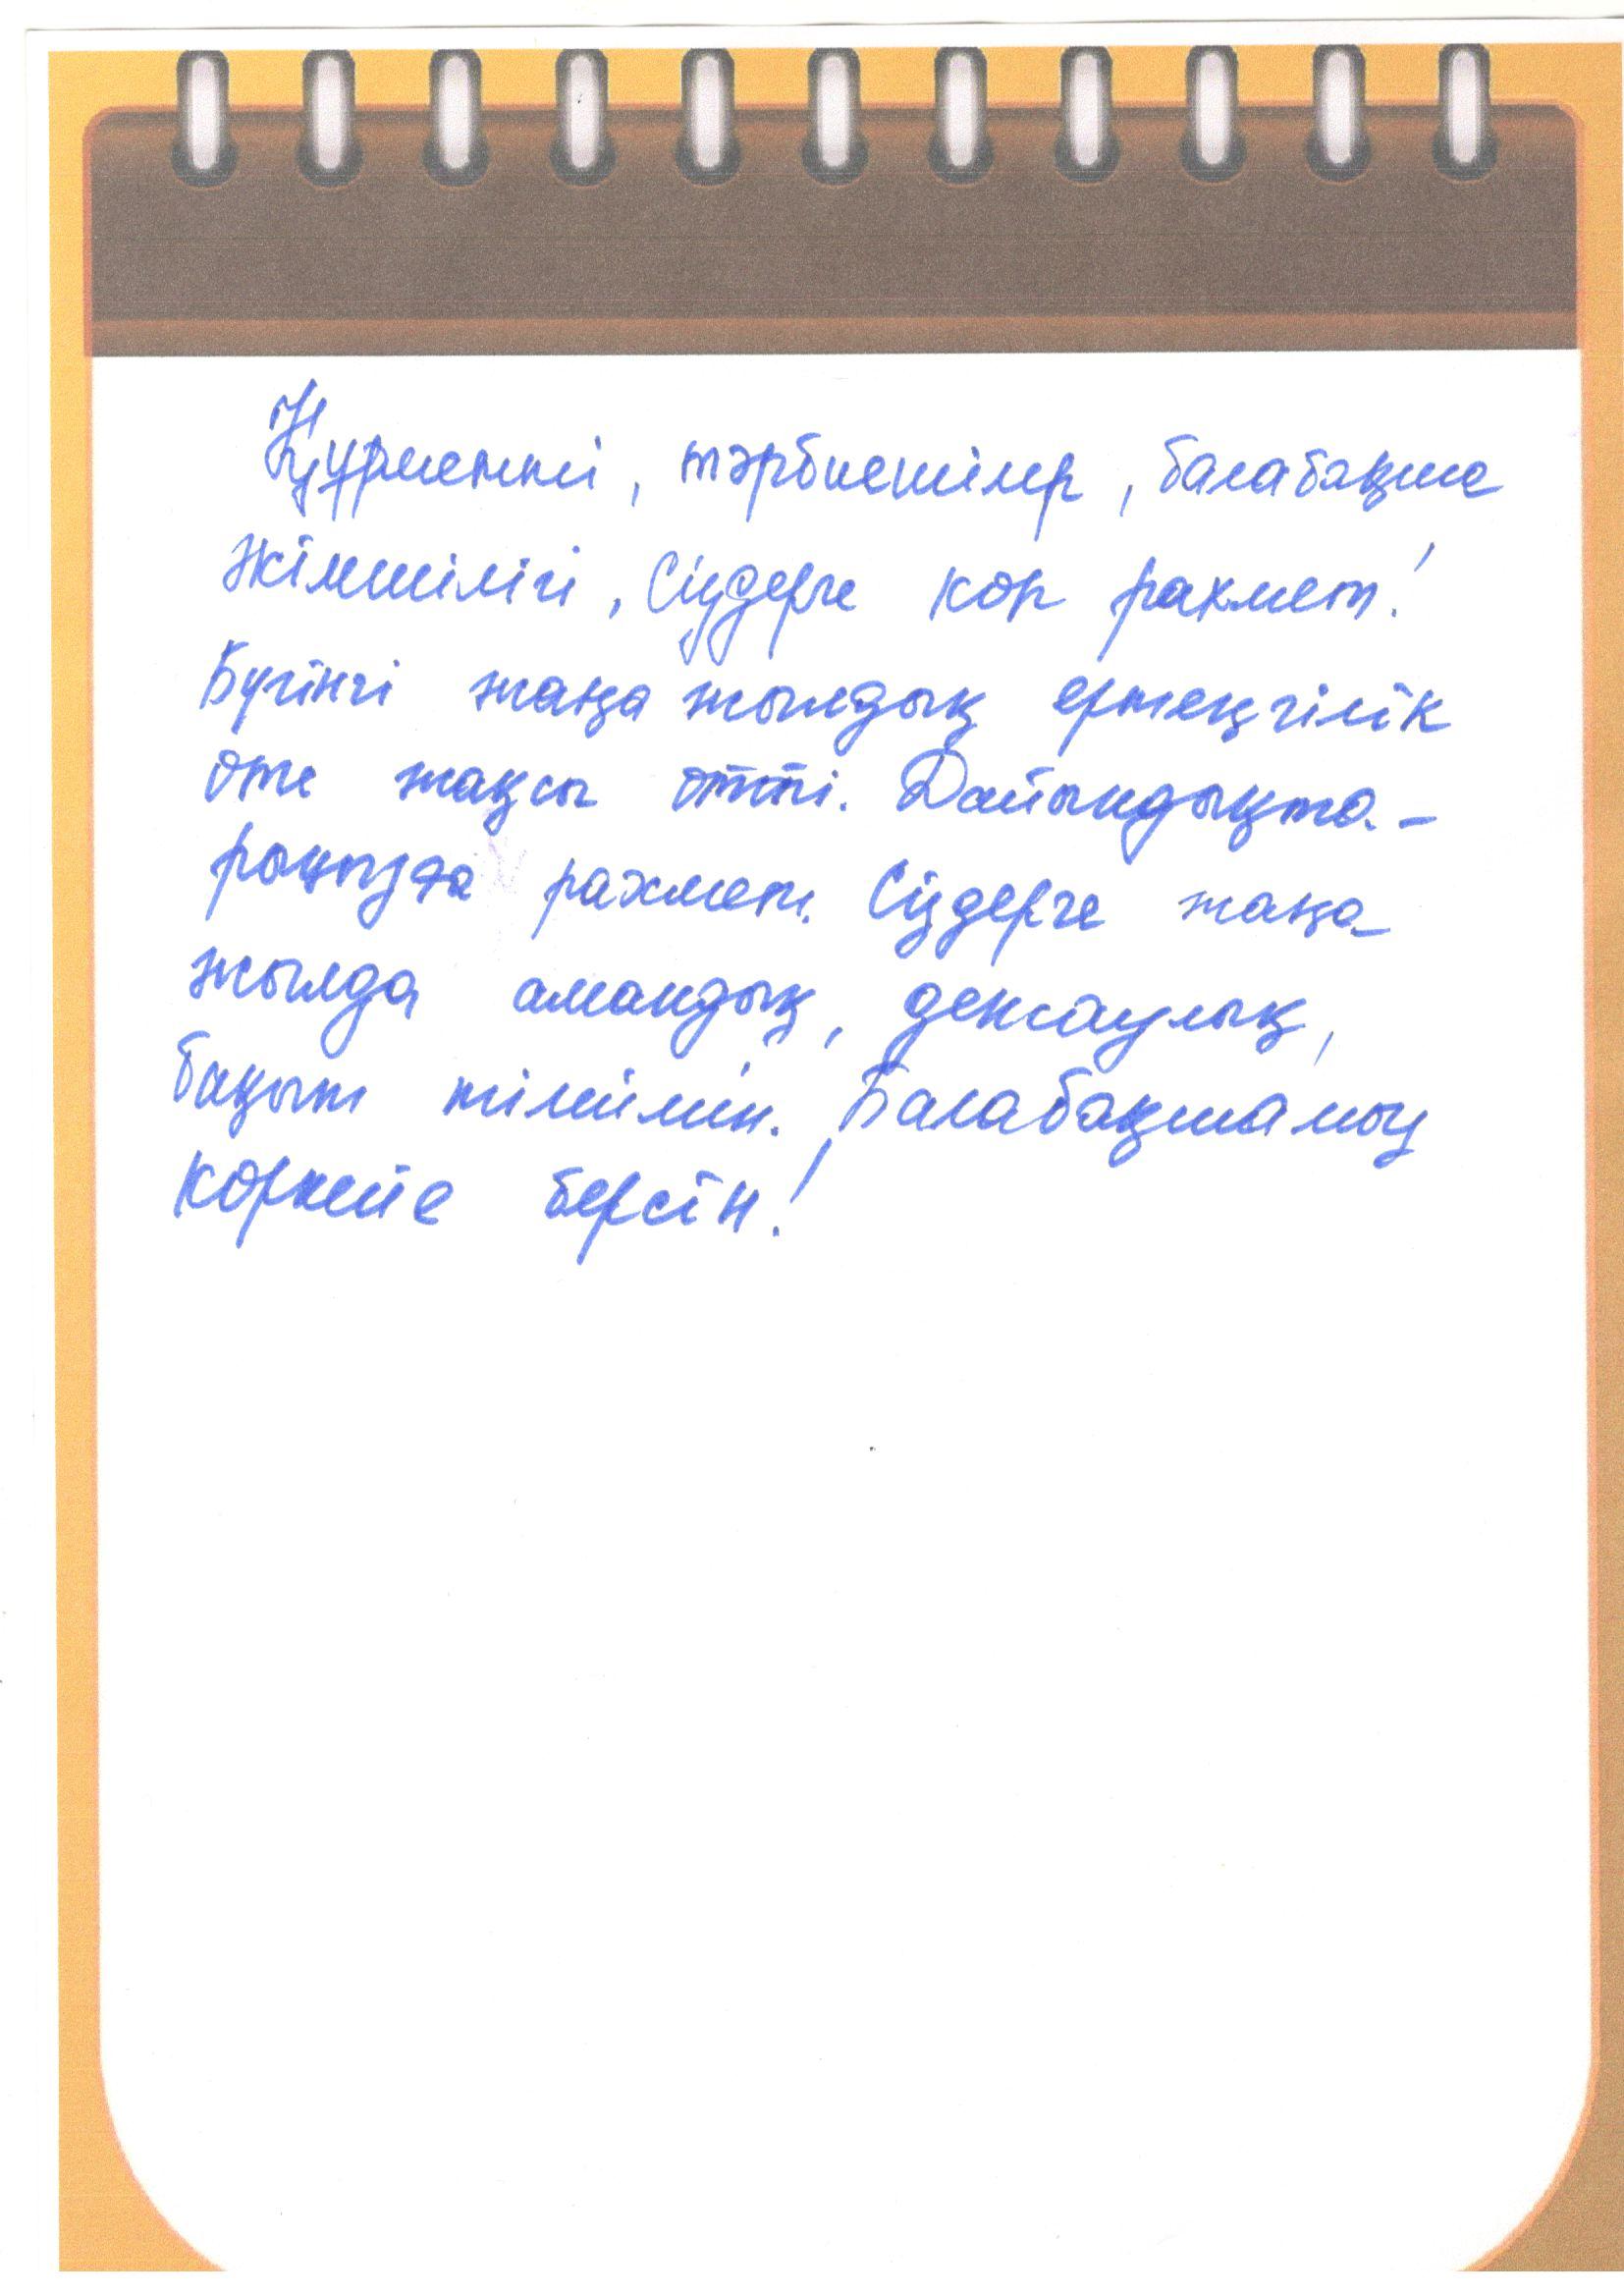 Құрметті, тәрбиешілер, балабақша
әкімшілігі, Сіздерге көп рахмет!
Бүгінгі жаңа жылдық ертеңгілік
өте жақсы өтті. Дайындықта-
рыңызға рахмет. Сіздерге жаңа
жылда амандық, денсаулық,
бақыт тілеймін. Балабақшамыз
көркейе берсін!